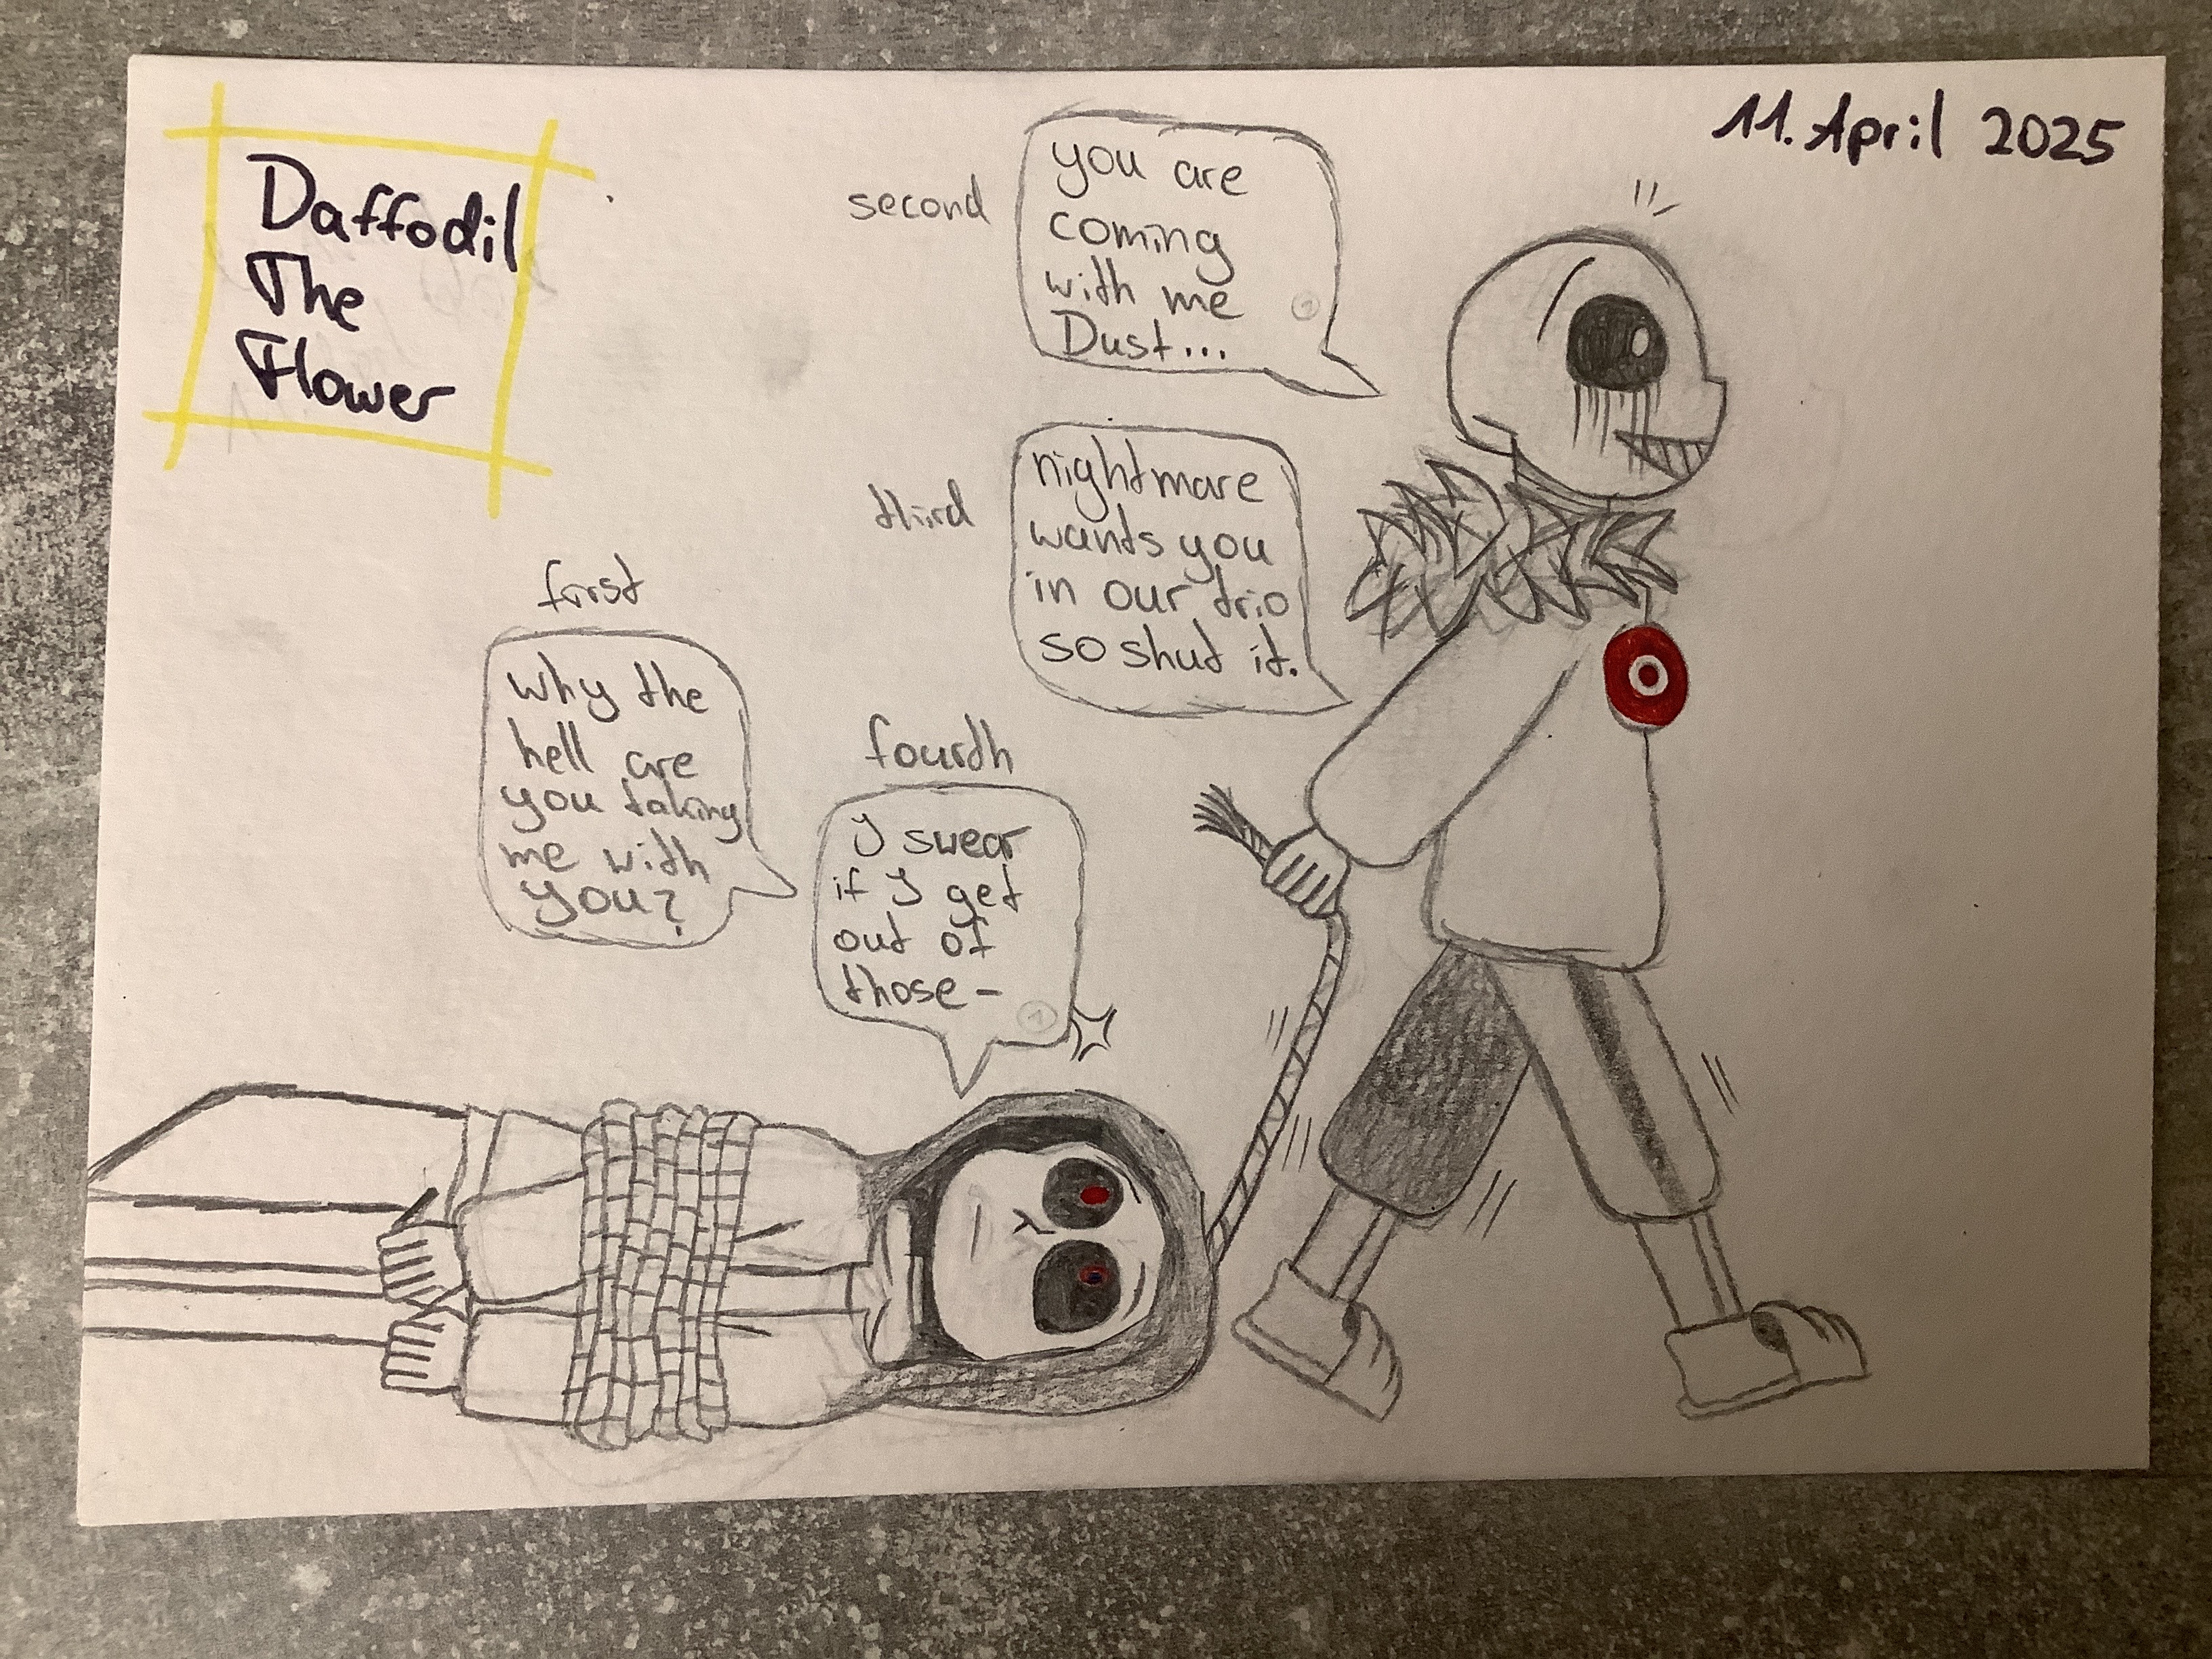 Daffodil
The
Flower
11. April 2025
second
you are
coming
with me
Dust...
third
nightmare
wants you
in our trio
so shut it.
first
why the
hell are
you taking
me with
you?
fourth
I swear
if I get
out of
those-